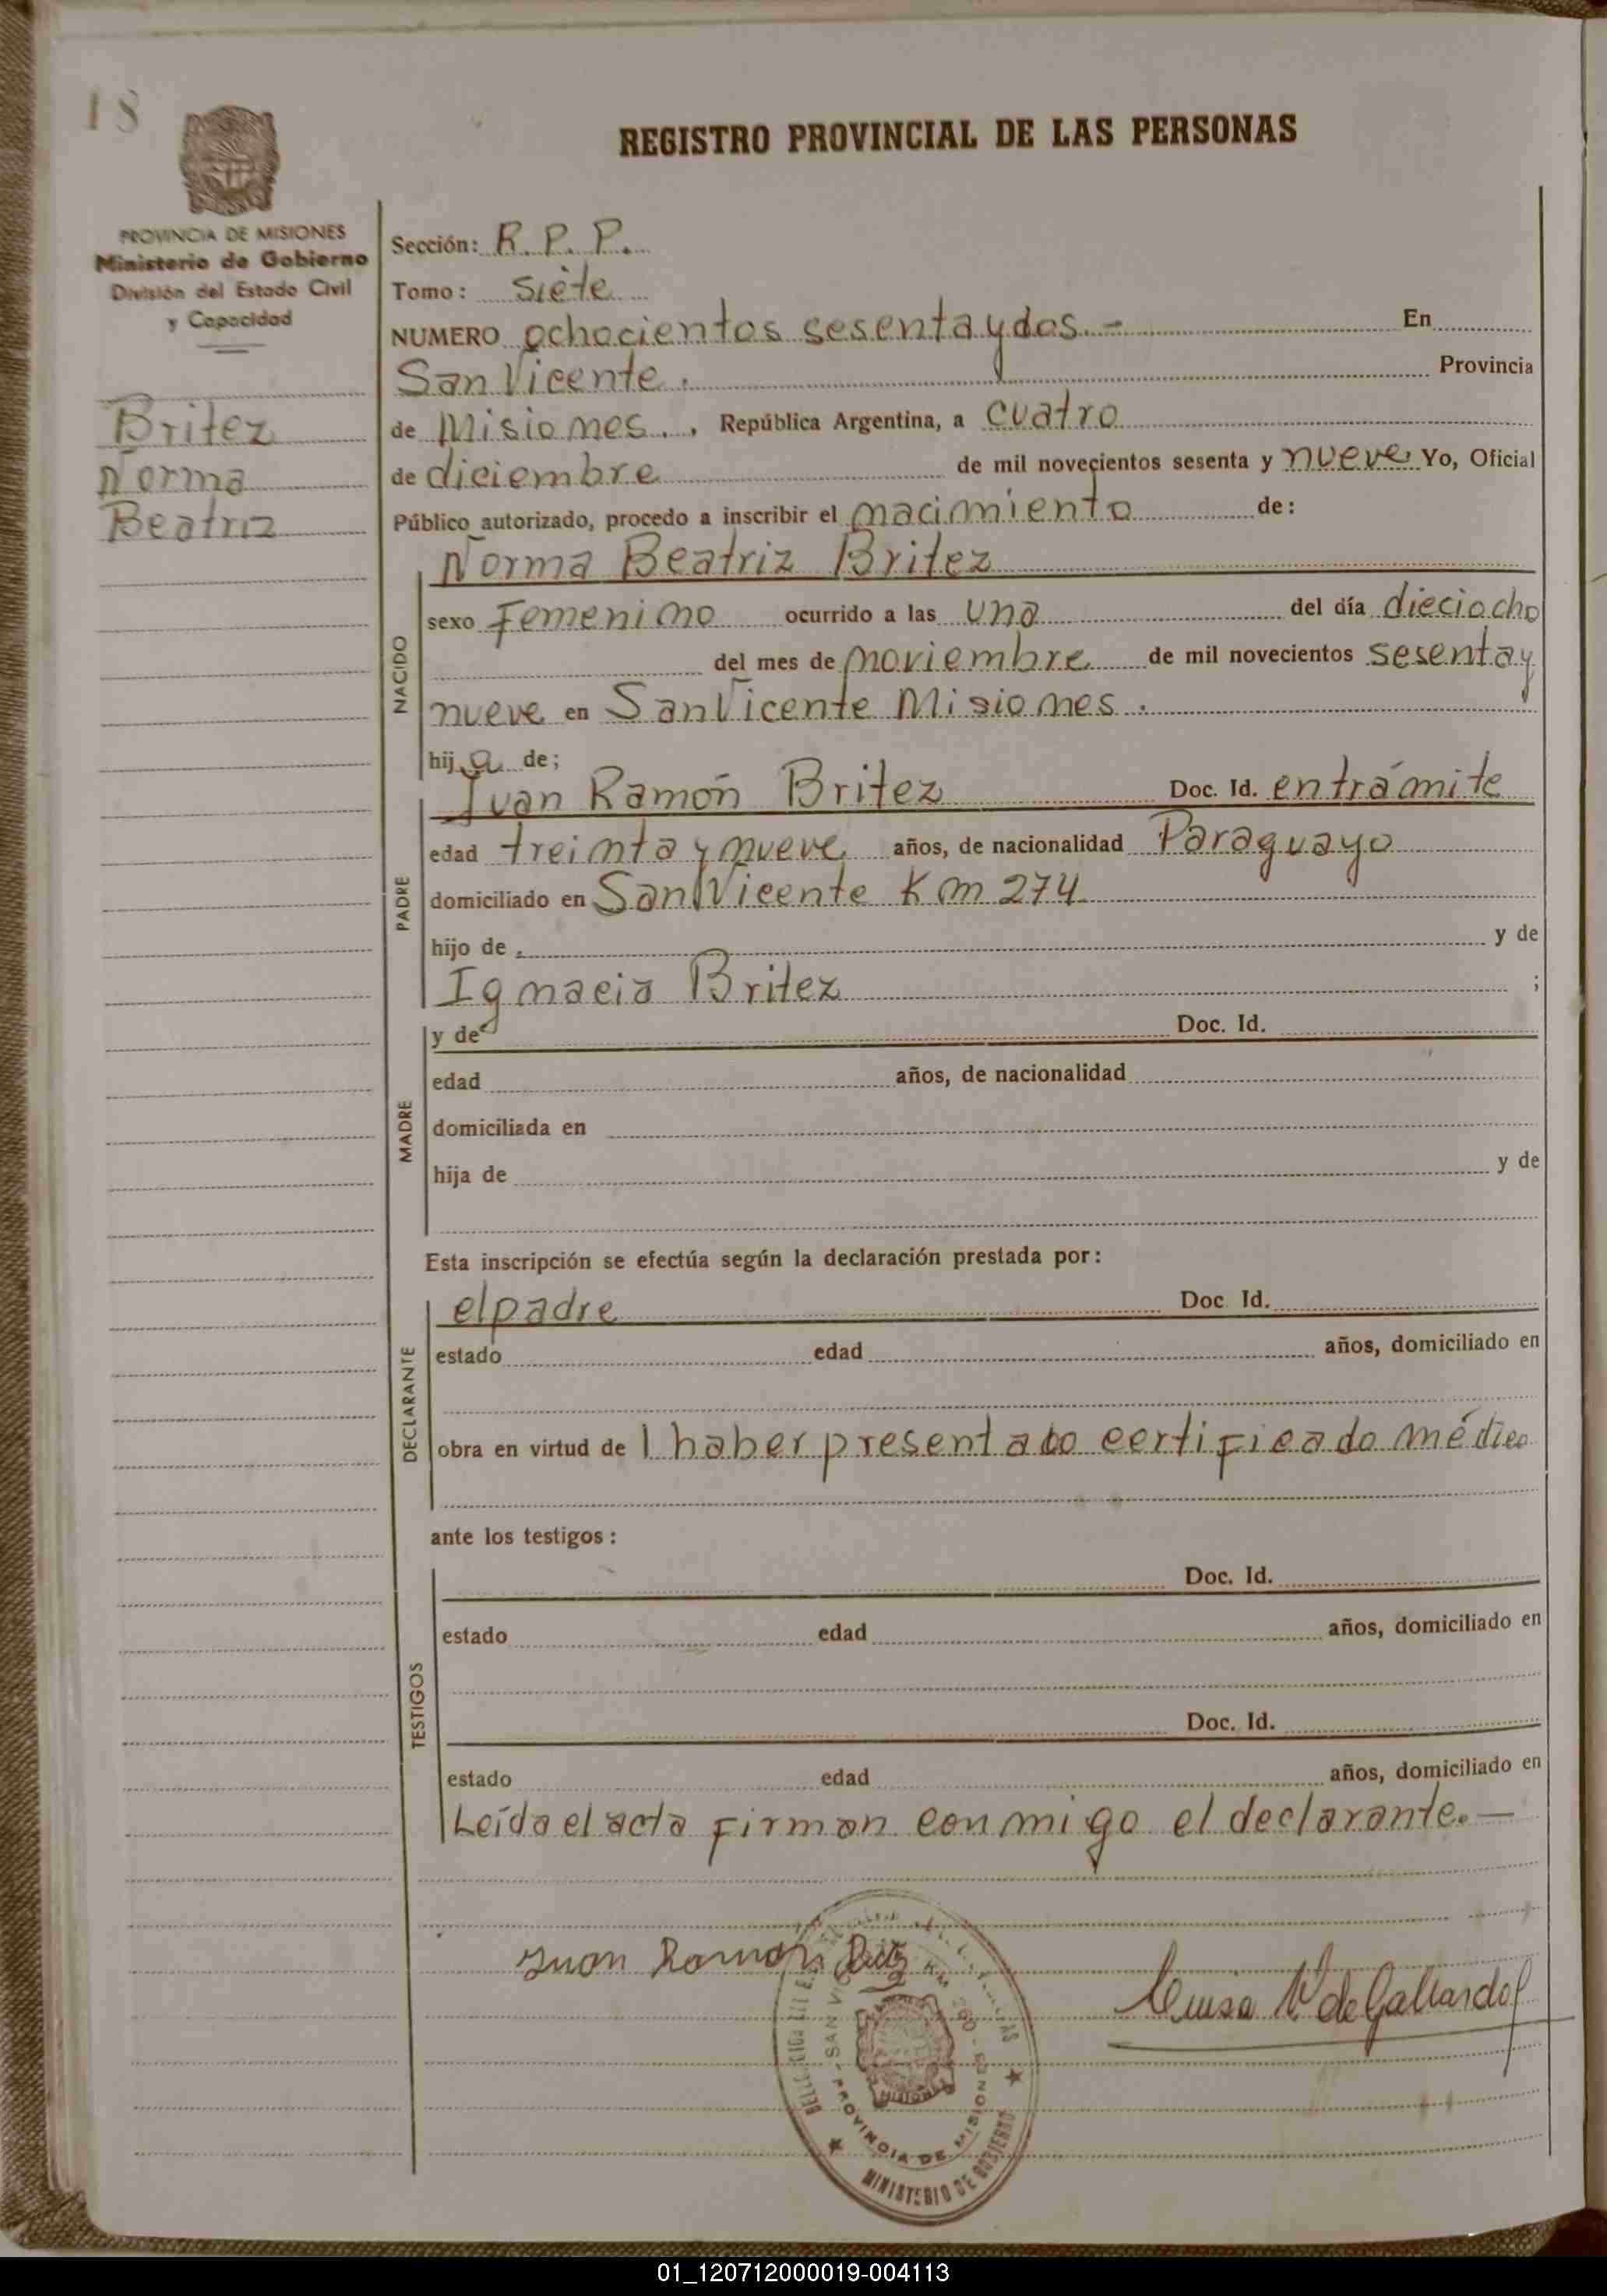 18
REGISTRO PROVINCIAL DE LAS PERSONAS
PROVINCIA DE MISIONES
Ministerio de Gobierno
División del Estado Civil
y Capacidad
Britez
Norma
Beatriz
Sección: R. P. P.
Tomo: siete
NUMERO ochocientos sesenta y dos.- En
San Vicente. Provincia
de Misiones., República Argentina, a cuatro
de diciembre de mil novecientos sesenta y nueve Yo, Oficial
Público autorizado, procedo a inscribir el nacimiento de:
Norma Beatriz Britez
NACIDO
sexo Femenino ocurrido a las una del día dieciocho
del mes de noviembre de mil novecientos sesenta y
nueve en San Vicente Misiones.
hija de;
PADRE
Juan Ramón Britez Doc. Id. en trámite
edad treinta y nueve años, de nacionalidad Paraguayo
domiciliado en San Vicente Km 274
hijo de y de
Ignacia Britez ;
MADRE
y de Doc. Id.
edad años, de nacionalidad
domiciliada en
hija de y de
Esta inscripción se efectúa según la declaración prestada por:
DECLARANTE
el padre Doc. Id.
estado edad años, domiciliado en
obra en virtud de l haber presentado certificado médico
ante los testigos:
TESTIGOS
Doc. Id.
estado edad años, domiciliado en
Doc. Id.
estado edad años, domiciliado en
Leída el acta firman conmigo el declarante.—
Juan Ramon
Luisa V. de Gallardo
SAN VI
PROVINCIA DE MISIONES
MINISTERIO DE GOBIERNO
01_120712000019-004113